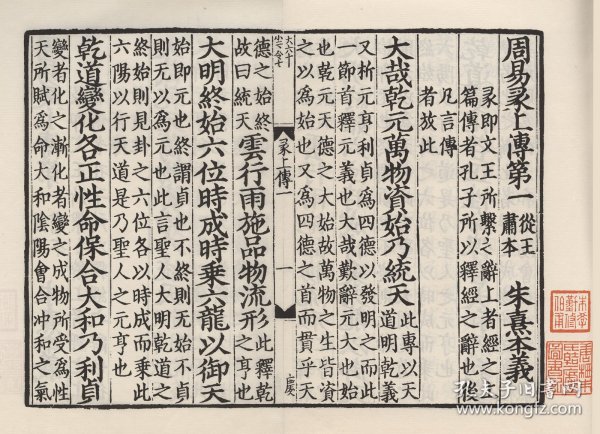 周易彖上傳第一 從王肅本 朱熹本義
彖即文王所繫之辭上者經之上
篇傳者孔子所以釋經之辭也後
凡言傳
者放此
大哉乾元萬物資始乃統天 此專以天道明乾義
又析元亨利貞爲四德以發明之而此
一節首釋元義也大哉歎辭元大也始
也乾元天德之大始故萬物之生皆資
之以爲始也又爲四德之首而貫乎天
彖上傳一
一
德之始終故曰統天 雲行雨施品物流形 此釋乾之亨也
大明終始六位時成時乘六龍以御天
始即元也終謂貞也不終則无始不貞
則无以爲元也此言聖人大明乾道之
終始則見卦之六位各以時成而乘此
六陽以行天道是乃聖人之元亨也
乾道變化各正性命保合大和乃利貞
變者化之漸化者變之成物所受爲性
天所賦爲命大和陰陽會合沖和之氣
孔夫子旧书网
www.kongfz.com